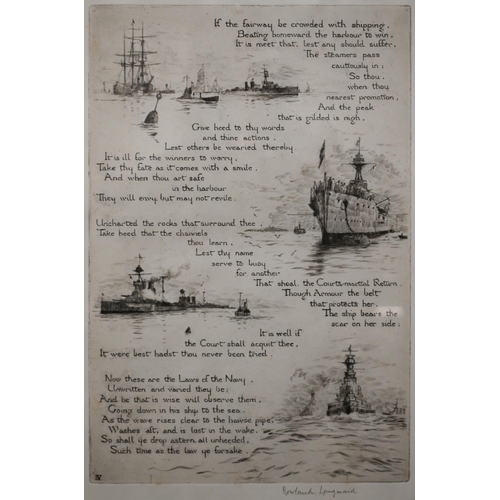 If the fairway be crowded with shipping,
Beating homeward the harbour to win,
It is meet that, lest any should suffer,
The steamers pass
cautiously in;
So thou,
when thou
nearest promotion,
And the peak
that is gilded is nigh,
Give heed to thy words
and thine actions,
Lest others be wearied thereby.
It is ill for the winners to worry,
Take thy fate as it comes with a smile,
And when thou art safe
in the harbour
They will envy, but may not revile.
Uncharted the rocks that surround thee,
Take heed that the channels
thou learn,
Lest thy name
serve to buoy
for another
That shoal, the Courts-martial Return.
Though Armour the belt
that protects her,
The ship bears the
scar on her side;
It is well if
the Court shall acquit thee,
It were best hadst thou never been tried.
Now these are the Laws of the Navy,
Unwritten and varied they be;
And he that is wise will observe them,
Going down in his ship to the sea.
As the wave rises clear to the hawse pipe,
Washes aft, and is lost in the wake,
So shall ye drop astern, all unheeded,
Such time as the law ye forsake.
IV
Rowland Langmaid